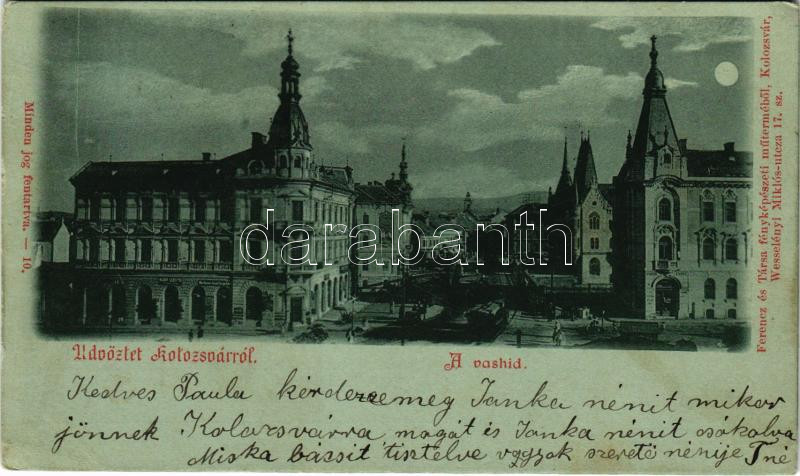 Minden jog fentartva. — 10.
Ferencz és Társa fényképészeti műterméből, Kolozsvár,
Wesselényi Miklós-utcza 17. sz.
darabanth
Üdvözlet Kolozsvárról.
A vashid.
Kedves Paula kérdezze meg Janka nénit mikor
jönnek Kolozsvárra magát és Janka nénit csókolva
Miska bácsit tisztelve vagyok szerető nénije Tné